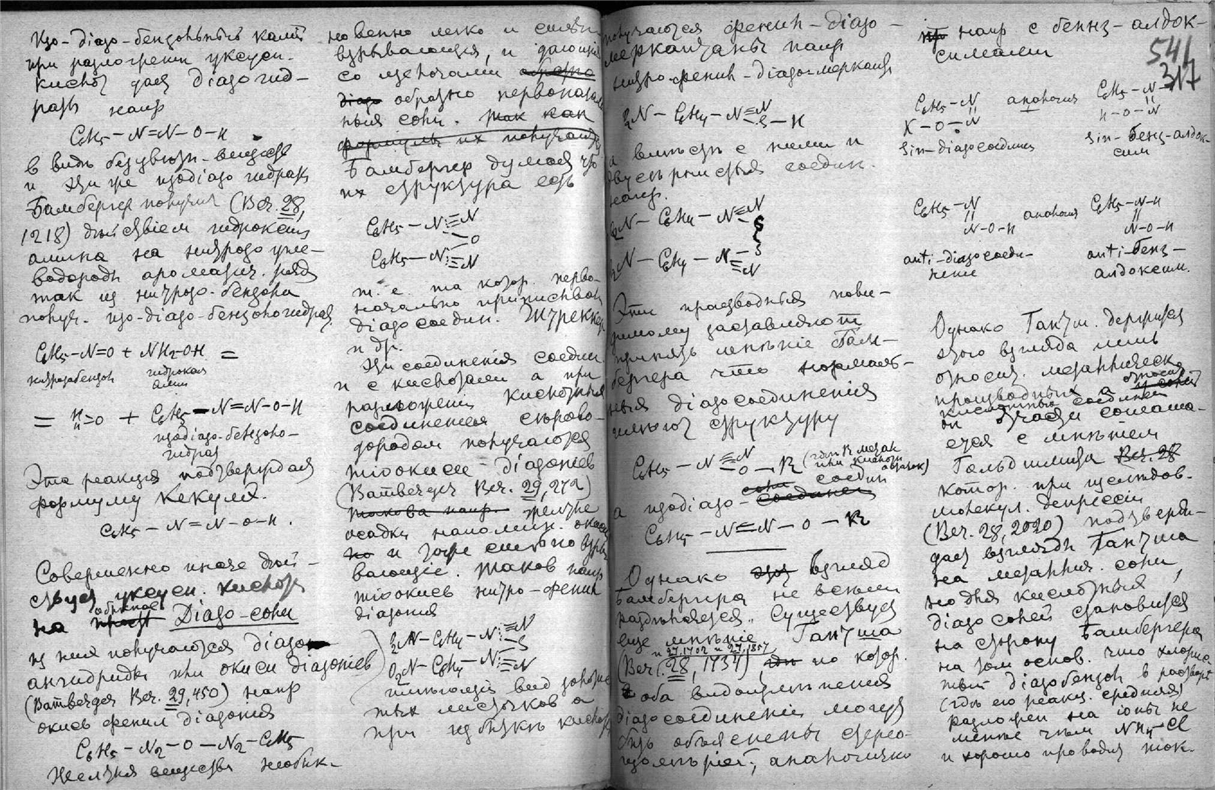 Изо-диазо-бензольный калий
при разложении уксусн.
кислот. дает диазогид-
рат напр
C6H5 – N=N – O – H
в виде безцветн. веществ
и Эти же изодиазо гидрат
Бамбергер получил (Ber. 28,
1218) действием гидроксил
амина на нитрозо угле-
водороды ароматич. ряда
так из нитрозо-бензола
получ. изо-диазо-бензолгидрат
C6H5–N=O + NH2–OH =
нитрозобензол гидроксил
амин
= H2=O + C6H5–N=N–O–H
изодиазо-бензоло-
гидрат
Эта реакция подтверждает
формулу Кекуле.
C6H5 – N = N – O – H.
Совершенно иначе дей-
ствует уксусн. кислота
на обыкнов. Диазо-соли
из них получаются диазо
ангидриды или окиси диазониев
(Bamberger Ber. 29, 450) напр
окись фенил диазония
C6H5 – N2 – O – N2 – C6H5
Желтыя вещества необык-
новенно легко и сильн
взрывающия, и дающия
со щелочами
диазо образно первонач
ныя соли. так как
формулы их получают
Бамбергер думает что
их структура есть
C6H5 – N≡N
O
C6H5 – N≡N
т. е та котор. перво-
начально приписывал
диазосоедин. Штреккер
и др.
Эти соединения соедин.
и с кислотами а при
разложении кислотных
соединения сърово-
дородом получаются
тиокиси-диазониев
(Bamberger Ber. 29, 272)
такова напр. желтые
осадки напомин. окиси
но и тоже сильно взры
вающие. таков напр
тиокись нитро-фенил
диазония
O2N–C6H4–N≡N
S
O2N–C6H4–N≡N
имеющий вид
тых листочков а
при избытке кислот
получаются фенил-диазо-
меркаптаны напр
нитро-фенил-диазо-меркапт
O2N – C6H4 – N≡N
S – H
а вместе с ними и
двусернистыя соедин.
напр.
O2N – C6H4 – N≡N
S
S
O2N – C6H4 – N≡N
Эти производныя пови-
димому заставляют
принять мнение Бам-
бергера что нормаль-
ныя диазосоединения
имеют структуру
C6H5 – N≡N
O – R (где R металл
или кислотн образок)
а изодиазо- соедин
C6H5 – N=N – O – R
Однако взгляд
Бамбергера не всеми
разделяется. Существует
еще мнение Гантша
и 27,1702 и 27,1857
(Ber. 28, 1734) по котор.
оба видоизменения
диазосоединений могут
быть объяснены стерео-
изомерией, аналогично
напр с бенз-алдок-
симами
541
317
C6H5 – N аналогия C6H5 – N
K – O – N H – O – N
Sin-диазосоединен Sin-бенз-алдок-
сим
C6H5 – N аналогия C6H5 – N–H
N–O–H N–O–H
anti-диазосоеди- anti-бенз-
нение алдоксим.
Однако Гантш. держится
этого взгляда лишь
относит. металлическ
производных а относит
кислотных соединен
он отчасти соглаша-
ется с мнением
Гольдшмита Ber. 28
котор. при исследов.
молекул. депрессии
(Ber. 28, 2020) подтвержд-
дает взгляды Гантша
на металлич. соли
но для кислотных
диазо солей становится
на сторону Бамбергера
на том основ. что хлорис
тый диазобензол в растворе
(где его реакц. средняя)
разложен на ионы не
менее чем NH4Cl
и хорошо проводит ток.